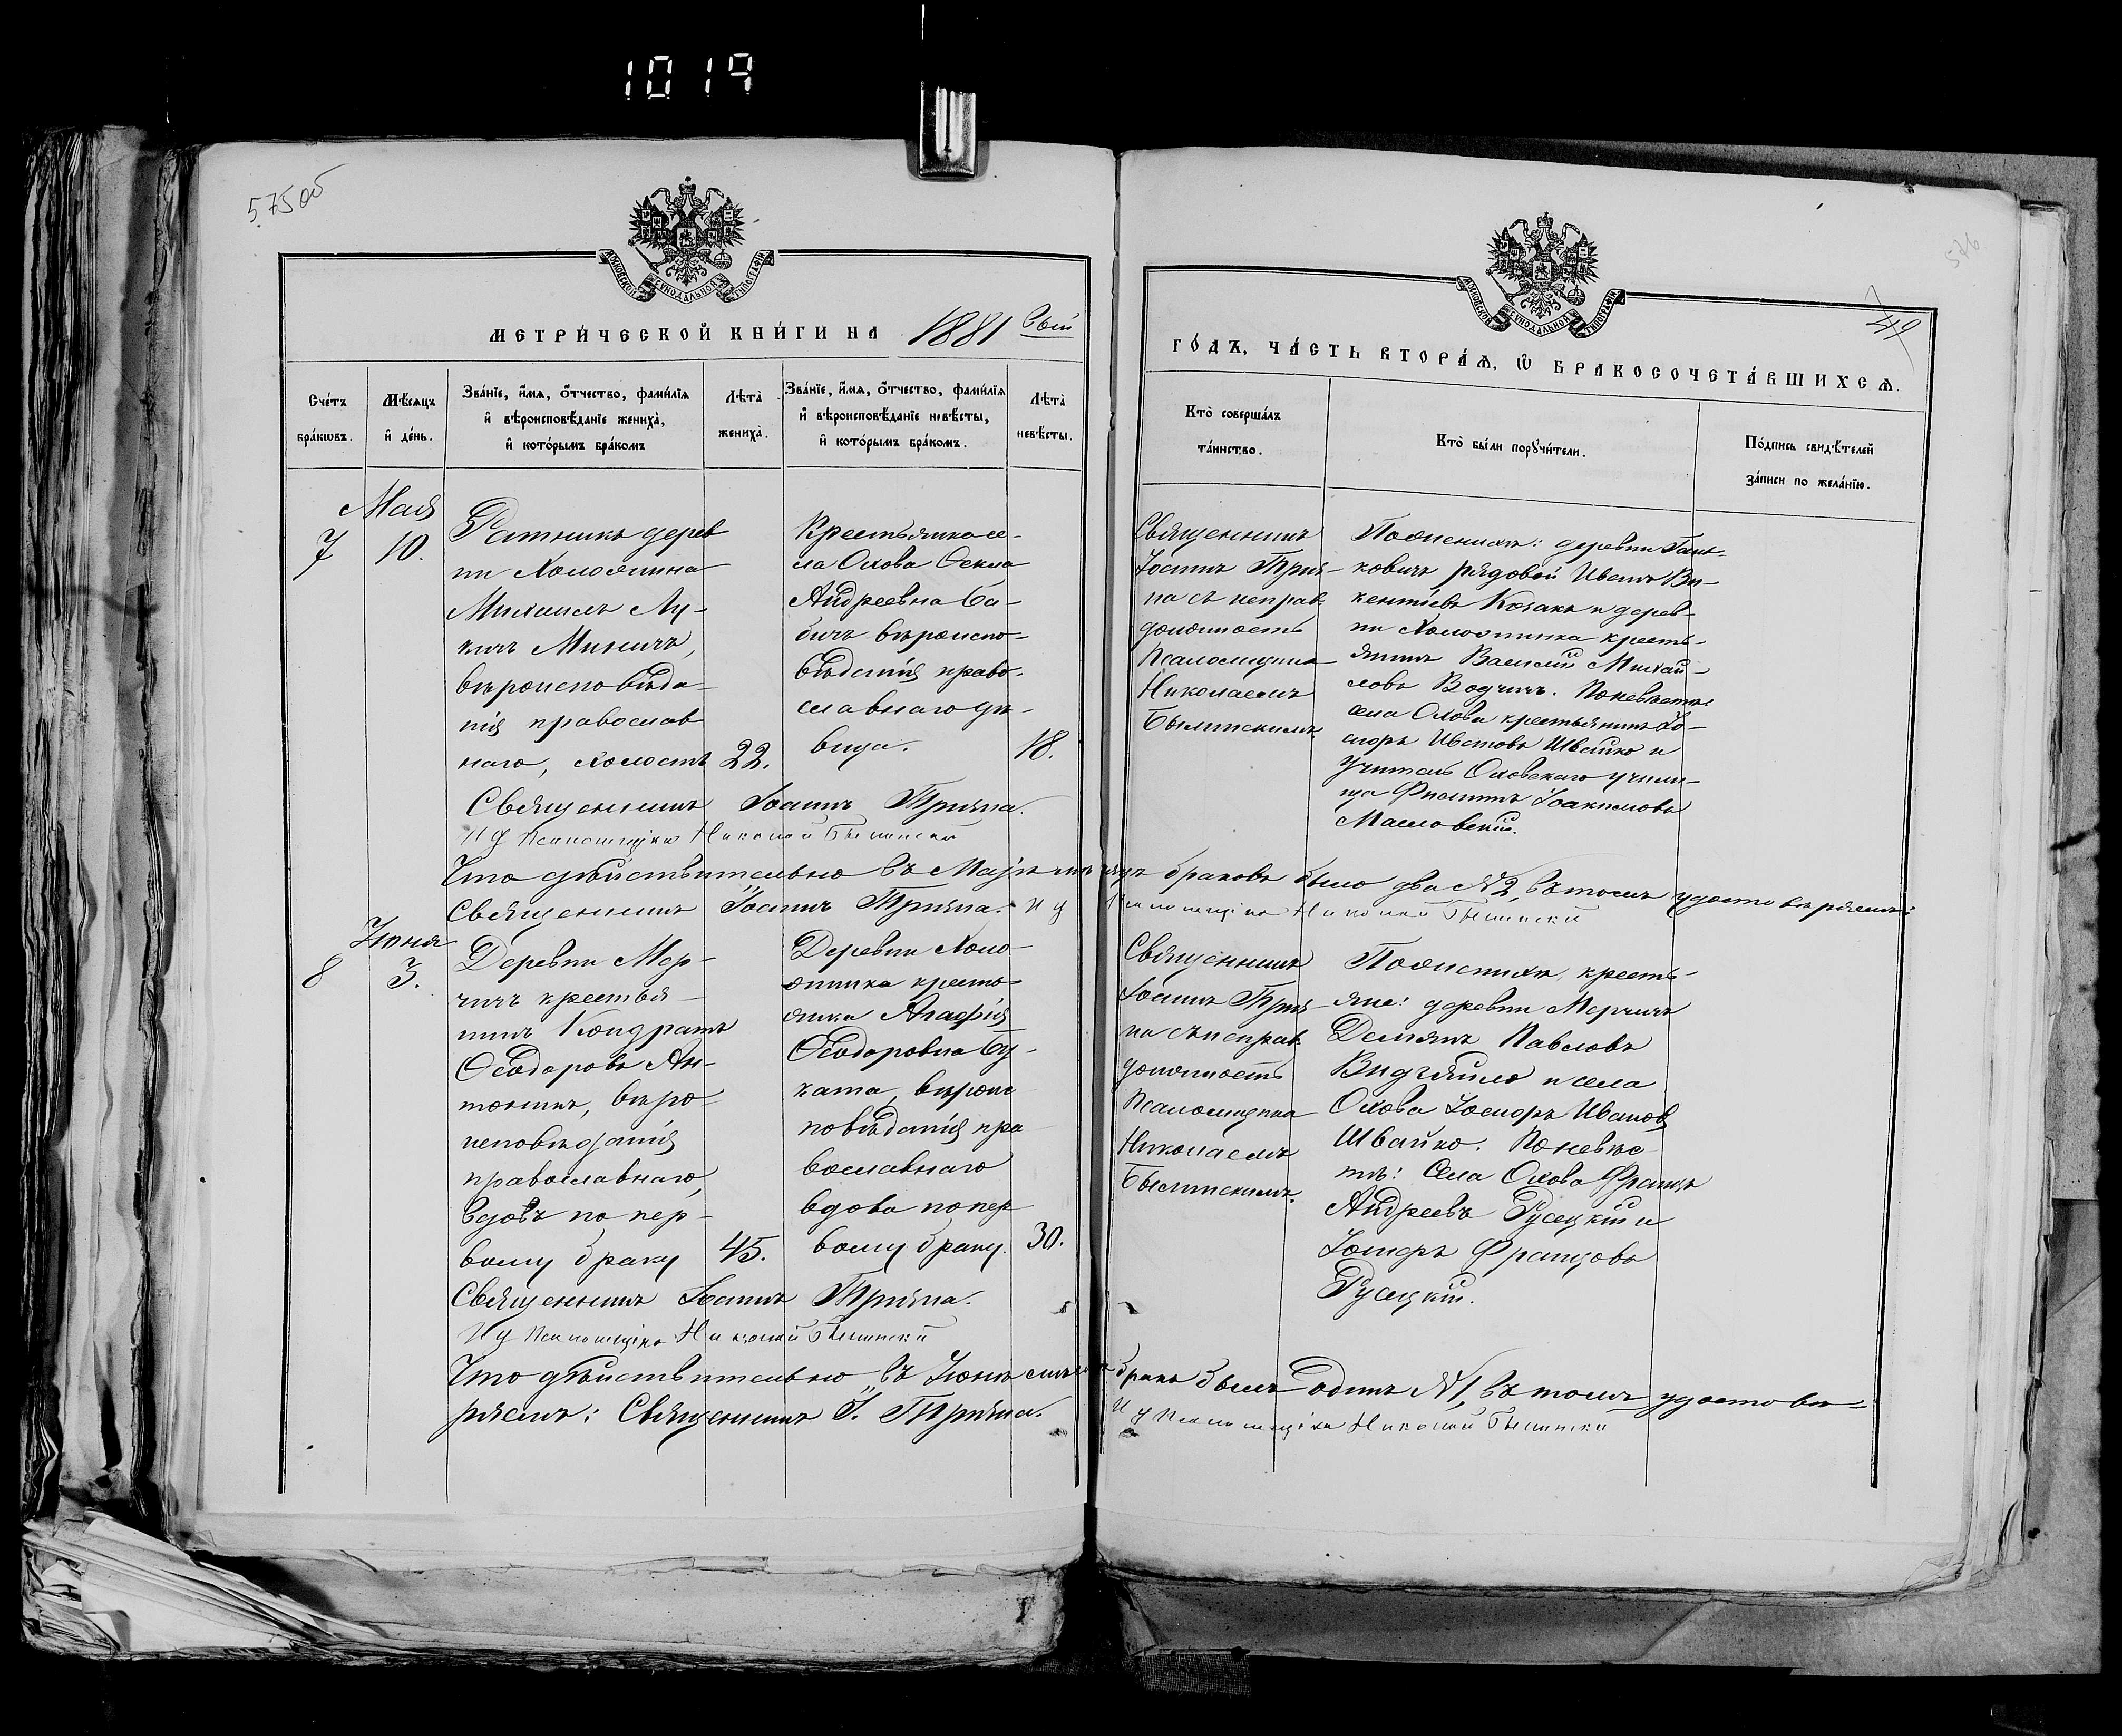 1019
575 об
576
МОСКОВСКОЙ СѴНОДАЛЬНОЙ ТИПОГРАФІИ
МОСКОВСКОЙ СѴНОДАЛЬНОЙ ТИПОГРАФІИ
МЕТРИ́ЧЕСКОЙ КНИ́ГИ НА 1881 вый
ГО́ДЪ, ЧА́СТЬ ВТОРА́Ѧ, Ѡ БРАКОСОЧЕТА́ВШИХСѦ.
Сче́тъ
бра́кѡвъ.
Мѣ́сяцъ
и҆ де́нь.
Зва́нїе, и҆́мѧ, ѻ҆́тчество, фами́лїѧ
и҆ вѣроисповѣ́данїе жениха̀,
и҆ кото́рымъ бра́комъ
Лѣ́та̀
жениха̀.
Зва́нїе, и҆́мѧ, ѻ҆́тчество, фами́лїѧ
и҆ вѣроисповѣ́данїе невѣ́сты,
и҆ кото́рымъ бра́комъ.
Лѣ́та̀
невѣ́сты.
Кто̀ соверша́лъ
та́инство.
Кто̀ бы́ли порꙋчи́тели.
По́дпись свидѣ́телей
за́писи по жела́нїю.
Мая
7
10.
Ратникъ дерев
ни Холопина
Михаилъ Лу-
кичъ Миничъ,
вѣроисповѣда-
нія православ
наго, холостъ
22.
Крестьянка се-
ла Охова Ѳекла
Андреевна Ба-
бичъ вѣроиспо-
вѣданія право-
славнаго дѣ-
вица.
18.
Священникъ
Іоаннъ Тризна
съ исправ.
должность
Псаломщика
Николаемъ
Поженихѣ: деревни
ковичъ рядовой Иванъ Ви-
кентіевъ Козакъ и дерев-
ни крестья-
янинъ Василій Михай-
ловъ Водчичъ. Поневѣстѣ:
села Охова крестьянинъ Іо-
сифъ Ивановъ Швайко и
Учитель Оховскаго учили-
ща Филиппъ Іоакимовъ
Священникъ Іоаннъ
И д Псаломщика Николай
Что дѣйствительно въ Маѣ мѣсяцѣ браковъ было два № 2, въ томъ удостовѣряемъ:
Священникъ Іоаннъ и д Псаломщика Николай
Іюня
8
3.
Деревни Мер-
чичъ крестья-
нинъ Кондратъ
Ѳеодоровъ Ан-
тонихъ, вѣро-
исповѣданія
православнаго,
вдовъ по пер-
вому браку
45.
Деревни
крестья-
янка Агафія
Ѳеодоровна Бу-
ката, вѣроис
повѣданія пра
вославнаго
вдова по пер
вому браку.
30.
Священникъ
Іоаннъ
съ исправ
должность
Псаломщика
Николаемъ
Поженихѣ, кресть-
яне: деревни Мерчичъ
Демянъ Павловъ
и села
Охова Іосифъ Ивановъ
Швайко. Поневѣс
тѣ: Села Охова Францъ
Андреевъ Русецкій и
Іосифъ Францовъ
Русецкій.
Священникъ Іоаннъ
И д Псаломщика Николай
Что дѣйствительно въ Іюнѣ мѣсяцѣ бракъ былъ одинъ № 1, въ томъ удостовѣ-
ряемъ: Священникъ І. И д Псаломщика Николай